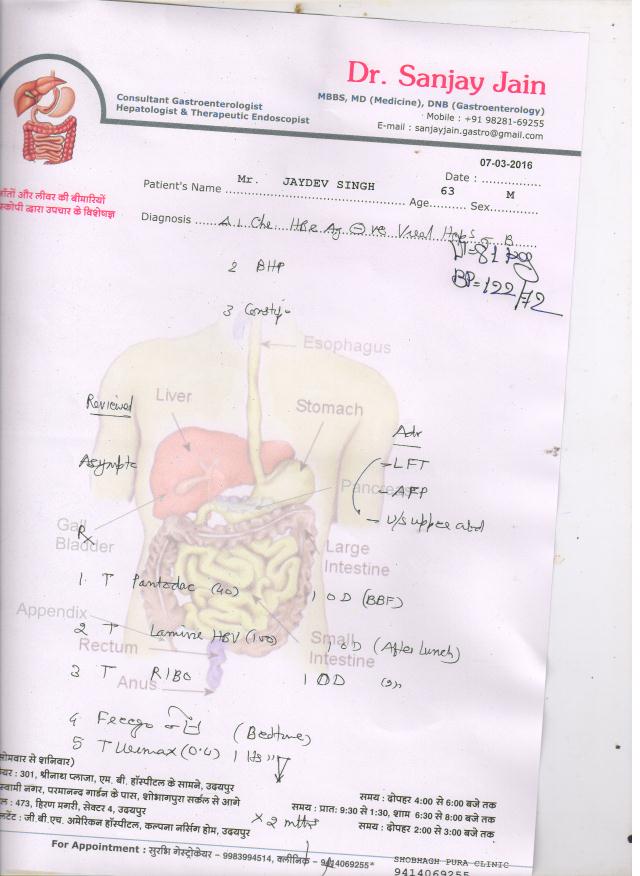 Dr. Sanjay Jain
MBBS, MD (Medicine), DNB (Gastroenterology)
Mobile : +91 98281-69255
E-mail : sanjayjain.gastro@gmail.com
Consultant Gastroenterologist
Hepatologist & Therapeutic Endoscopist
आँतों और लीवर की बीमारियों
स्कोपी द्वारा उपचार के विशेषज्ञ
07-03-2016
Patient's Name Mr. JAYDEV SINGH Age 63 Sex M Date :
Diagnosis HBsAg ⊖ve Viral B
Wt=81 kg
2 BHP
BP=122/72
3 Constip
Esophagus
Liver
Stomach
Reviewed
Adv
Asympto
- LFT
Pancreas
- AFP
- U/S upper abd
Gall
Bladder
Rx
Large
Intestine
1. T Pantodac (40) 1 OD (BBF)
Appendix
2 T Lamivir HBV (100) 1 OD (After lunch)
Small
Intestine
Rectum
3 T RIBO 1 OD
Anus
4 (Bedtime)
5 T (0.4) 1 HS
सोमवार से शनिवार)
यर : 301, श्रीनाथ प्लाजा, एम. बी. हॉस्पीटल के सामने, उदयपुर
समय : दोपहर 4:00 से 6:00 बजे तक
स्वामी नगर, परमानन्द गार्डन के पास, शोभागपुरा सर्कल से आगे
समय : प्रात: 9:30 से 1:30, शाम 6:30 से 8:00 बजे तक
ल : 473, हिरण मगरी, सेक्टर 4, उदयपुर
× 2 mths
लटेंट : जी.बी.एच. अमेरिकन हॉस्पीटल, कल्पना नर्सिंग होम, उदयपुर
समय : दोपहर 2:00 से 3:00 बजे तक
For Appointment : सुरभि गेस्ट्रोकेयर - 9983994514, क्लीनिक - 9414069255*
SHOBHAGH PURA CLINIC
9414069255